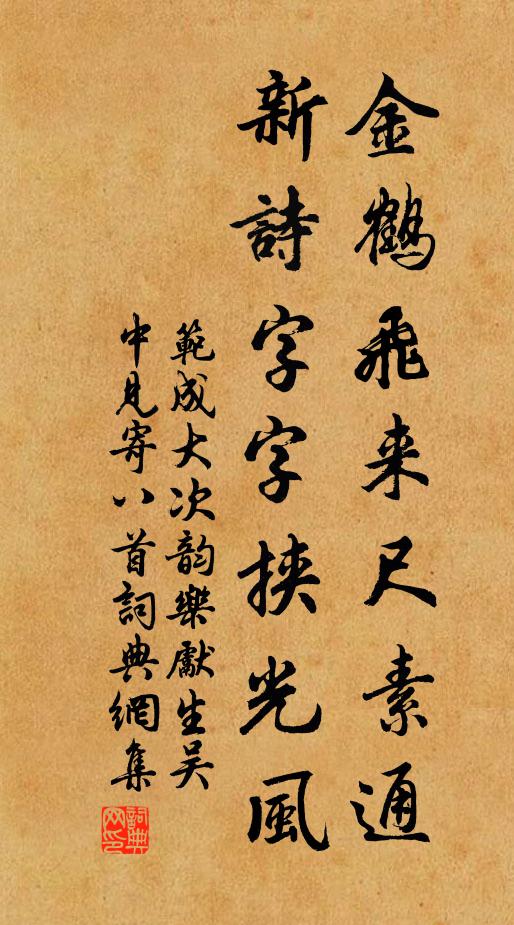 金鶴飛来尺素通
新詩字字挾光風
範成大次韵樂獻生吴
中見寄八首詞典網集
詞典网印